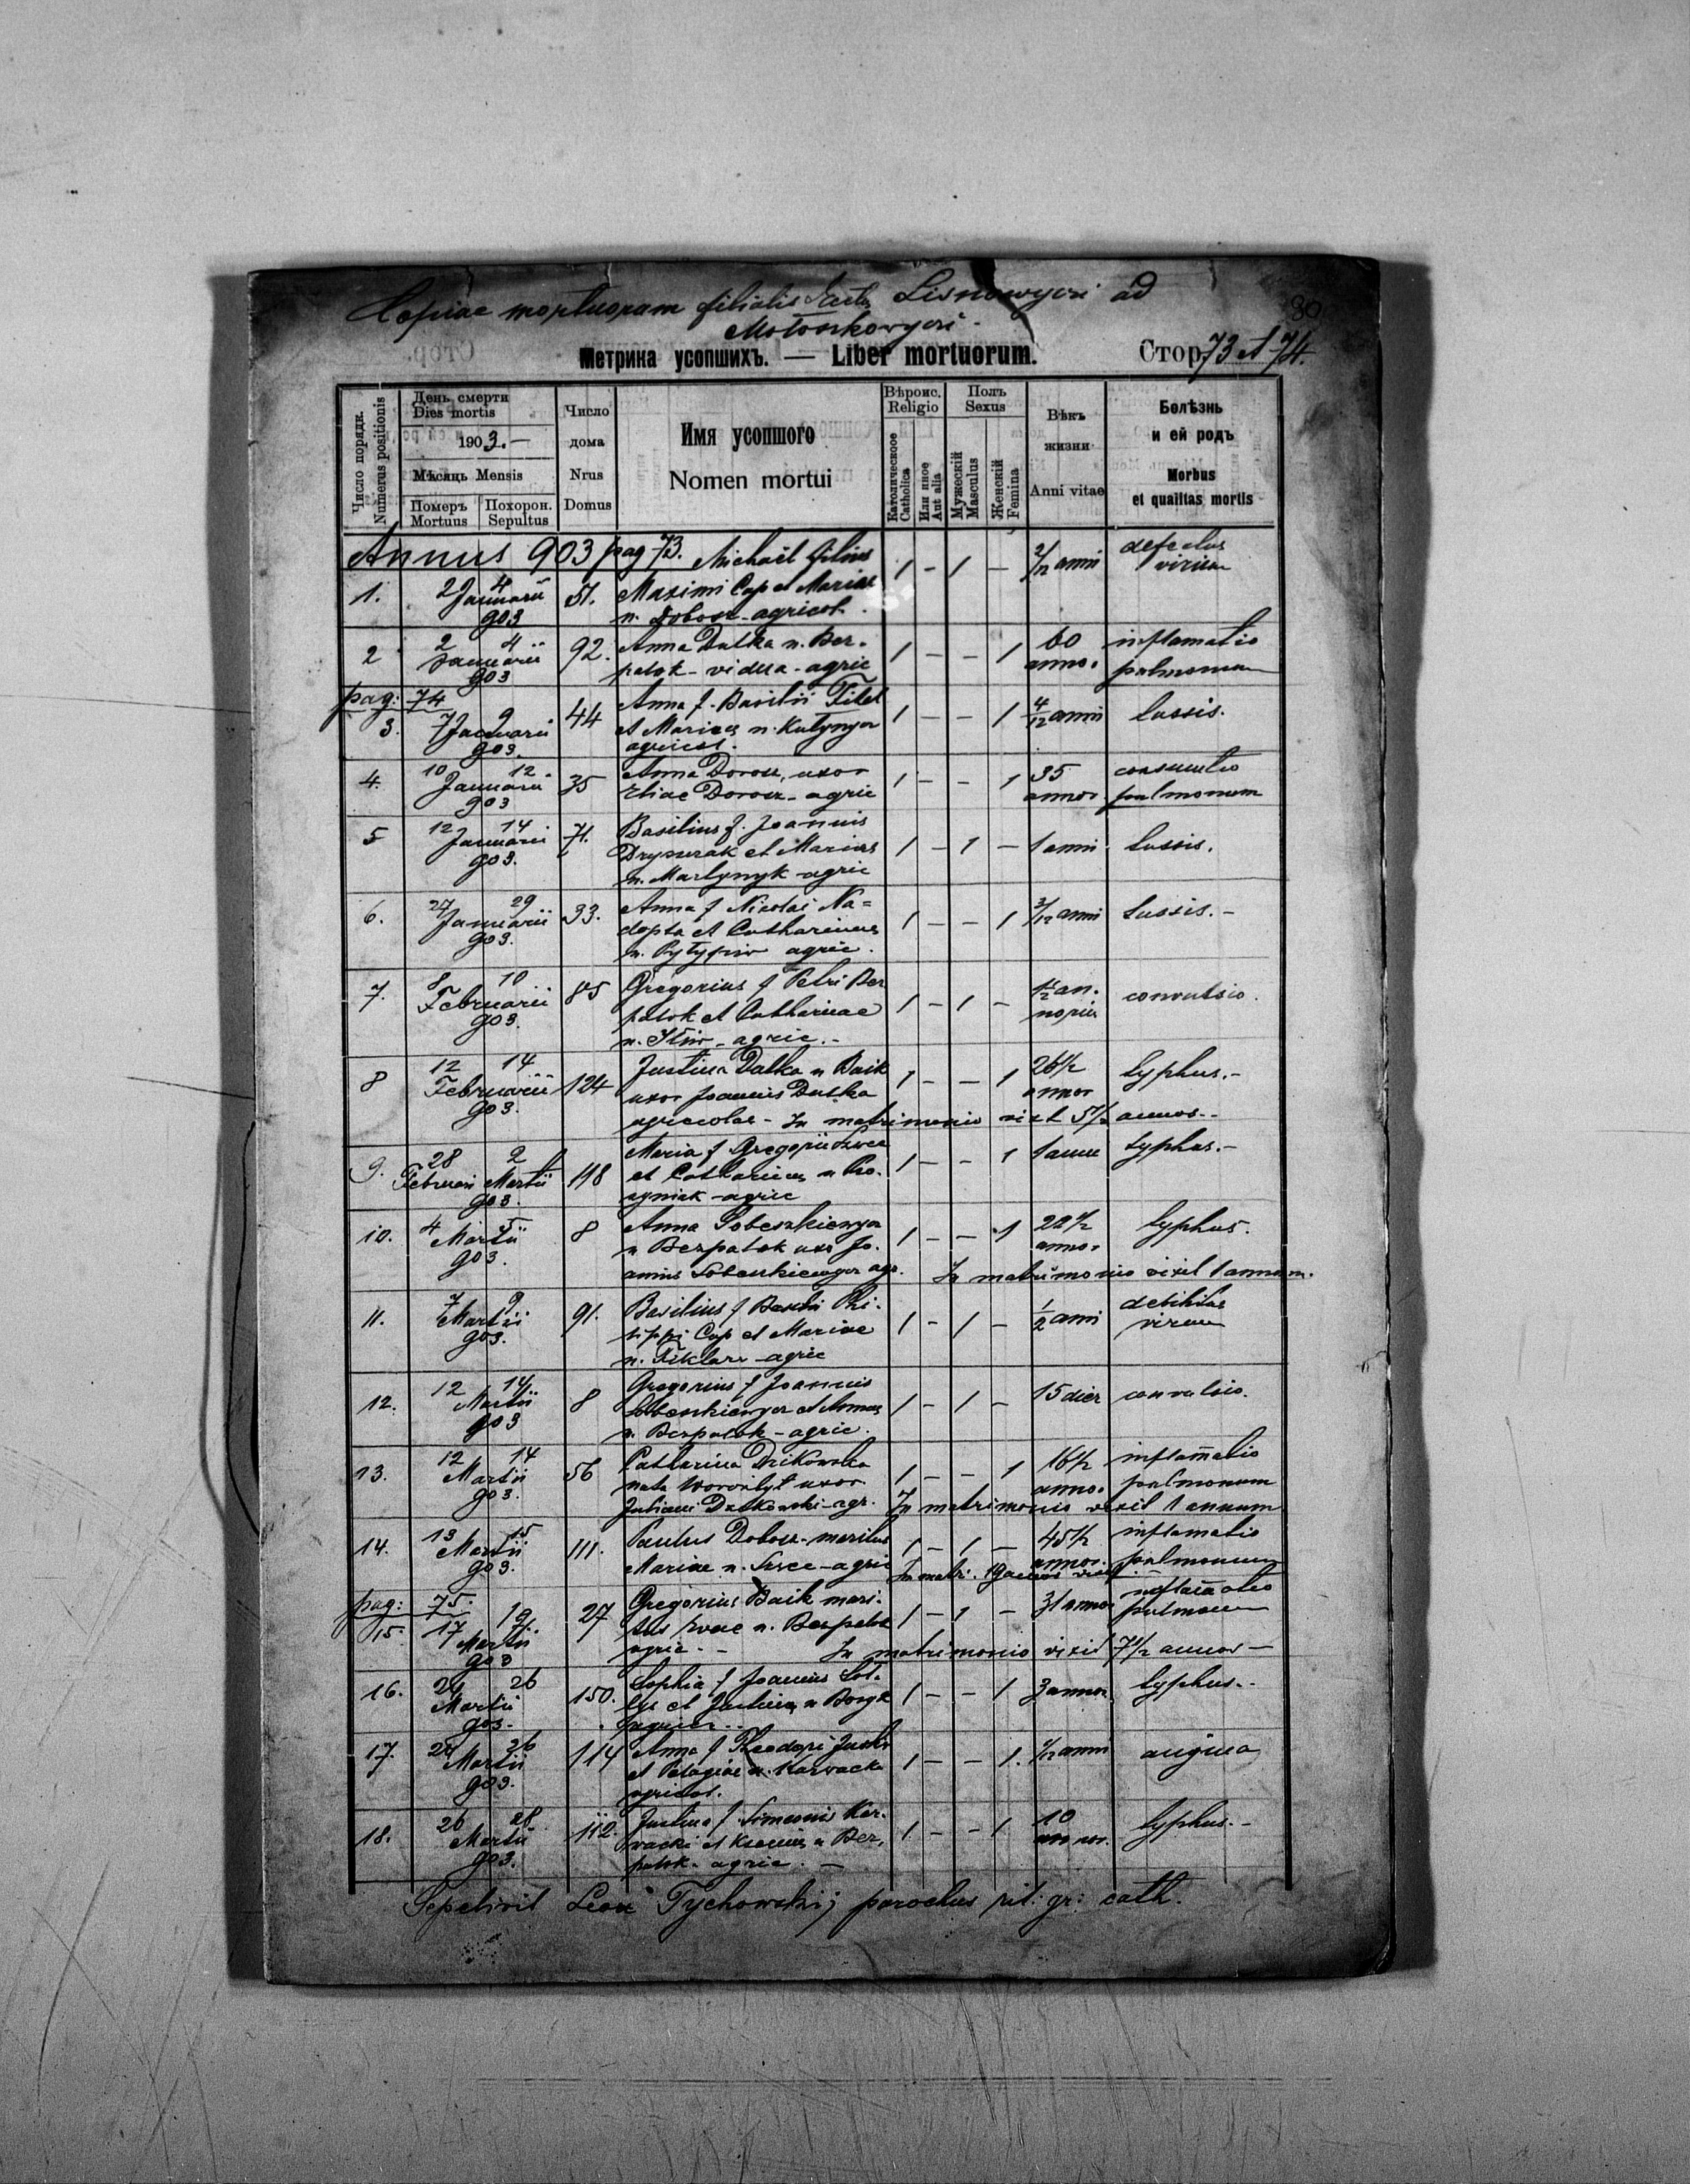 Copiae mortuorum filialis Eccl. Lisnowyczi ad
Mołoszkowyczi.
30
Метрика усопшихъ. — Liber mortuorum.
Стор. 73 et 74.
Число порядк.
Numerus positionis
День смерти
Dies mortis
1903.—
Мѣсяць Mensis
Померъ
Mortuus
Похорон.
Sepultus
Число
дома
Nrus
Domus
Имя усопшого
Nomen mortui
Вѣроис.
Religio
Католическое
Catholica
Или иное
Aut alia
Полъ
Sexus
Мужескій
Masculus
Женскій
Femina
Вѣкъ
жизни
Anni vitae
Болѣзнь
и ей родъ
Morbus
et qualitas mortis
Annus 903 pag 73.
1. 2 4 Januarii 903 51. Michaël filius
Maximi Cap et Mariae
n. Dobosz - agricol. 1 – 1 – 2/12 anni defectus
virium
2 2 4 Januarii 903 92. Anna Dutka n. Bez-
patok - vidua - agric 1 – – 1 60
annor. inflamatio
pulmonum
pag: 74
3. 7 9 Januarii 903. 44 Anna f. Basilii Fitel
et Mariae n. Kutynycz
agricol. 1 – – 1 4/12 anni tussis.
4. 10 12 Januarii 903 35 Anna Dorosz, uxor
Eliae Dorosz - agric 1 – – 1 35
annor consumtio
pulmonum
5 12 14 Januarii 903. 71. Basilius f. Joannis
et Mariae
n. Martynyk - agric 1 – 1 – 1 anni tussis.
6. 27 29 Januarii 903. 33. Anna f Nicolai Na=
dopta et Catharinae
n. agric. 1 – – 1 3/12 anni tussis. –
7. 8 10 Februarii 903. 85 Gregorius f Petri Bez
patok et Catharinae
n. Ilkiw - agric. - 1 – 1 – convulsio.
8 12 14 Februarii 903. 124 Justina Dutka n Baik
uxor Joannis Dutka
agricolae - In matrimonio vixit 5 1/2 annos. - 1 – – 1 26 1/2
annor typhus. –
9. 28 Februari 2 Martii 903. 118 Maria f Gregorii Szwec
et Catharinae n
agric 1 – – 1 1 anni typhus. –
10. 4 5 Martii 903. 8 Anna Sobeszkiewycz
n Bezpatok uxor Jo-
annis Sobeszkiewycz agr. In matrimonio vixit 1 annum. 1 – – 1 22 1/2
annor typhus.
11. 7 9 Martii 903. 91. Basilius f Basilii Phi-
lippi Cap et Mariae
n. - agric 1 – 1 – 1/2 anni debilitas
virium
12. 12 14 Martii 903 8 Gregorius f Joannis
Sobeszkiewycz et Annae
n. Bezpatok - agric. 1 – 1 – 15 dier convulsio.
13. 12 14 Martii 903 56 Catharina Dzikowska
nata uxor
Juliani Dzikowski - agr. In matrimonio vixit 1 annum 1 – – 1 16 1/2
annor. inflamatio
pulmonum
14. 13 15 Martii 903. 111. Paulus Dobosz - maritus
Mariae n. Szwec - agric In matri. 19 annos vixit 1 – 1 – 45 1/2
annor. inflamatio
pulmonum
pag: 75.
15 17 19. Martii 903 27 Gregorius Baik mari-
tus n. Bezpatok
agric - - In matrimonio vixit 7 1/2 annos – 1 – 1 – 31 annor inflamatio
pulmonum
16. 24 26 Martii 903. 150. Sophia f Joannis
et Justinae n
1 – – 1 3 annor typhus. -
17. 24 26 Martii 903. 114 Anna f Theodori
et Pelagiae n. Karwacka
agricol. 1 – – 1. anni angina
18. 26 28 Martii 903. 112. Justina f Simeonis Kar-
wacki et Kseniae n Bez-
patok - agric. – 1 – – 1 10
annor. typhus. –
Sepelivit Leon Tychowskij parochus rit: gr: cath.